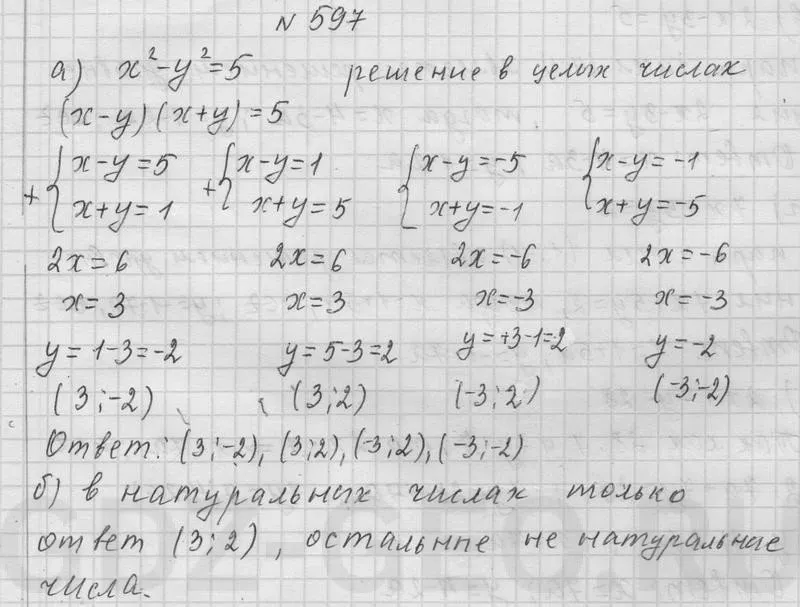 № 597
а) x²-y²=5 решение в целых числах
(x-y)(x+y)=5
+{x-y=5 +{x-y=1 {x-y=-5 {x-y=-1
x+y=1 x+y=5 x+y=-1 x+y=-5
2x=6 2x=6 2x=-6 2x=-6
x=3 x=3 x=-3 x=-3
y=1-3=-2 y=5-3=2 y=+3-1=2 y=-2
(3;-2) , (3;2) (-3;2) (-3;-2)
Ответ: (3;-2), (3;2), (-3;2), (-3;-2)
б) в натуральных числах только
ответ (3;2), остальные не натуральные
числа.